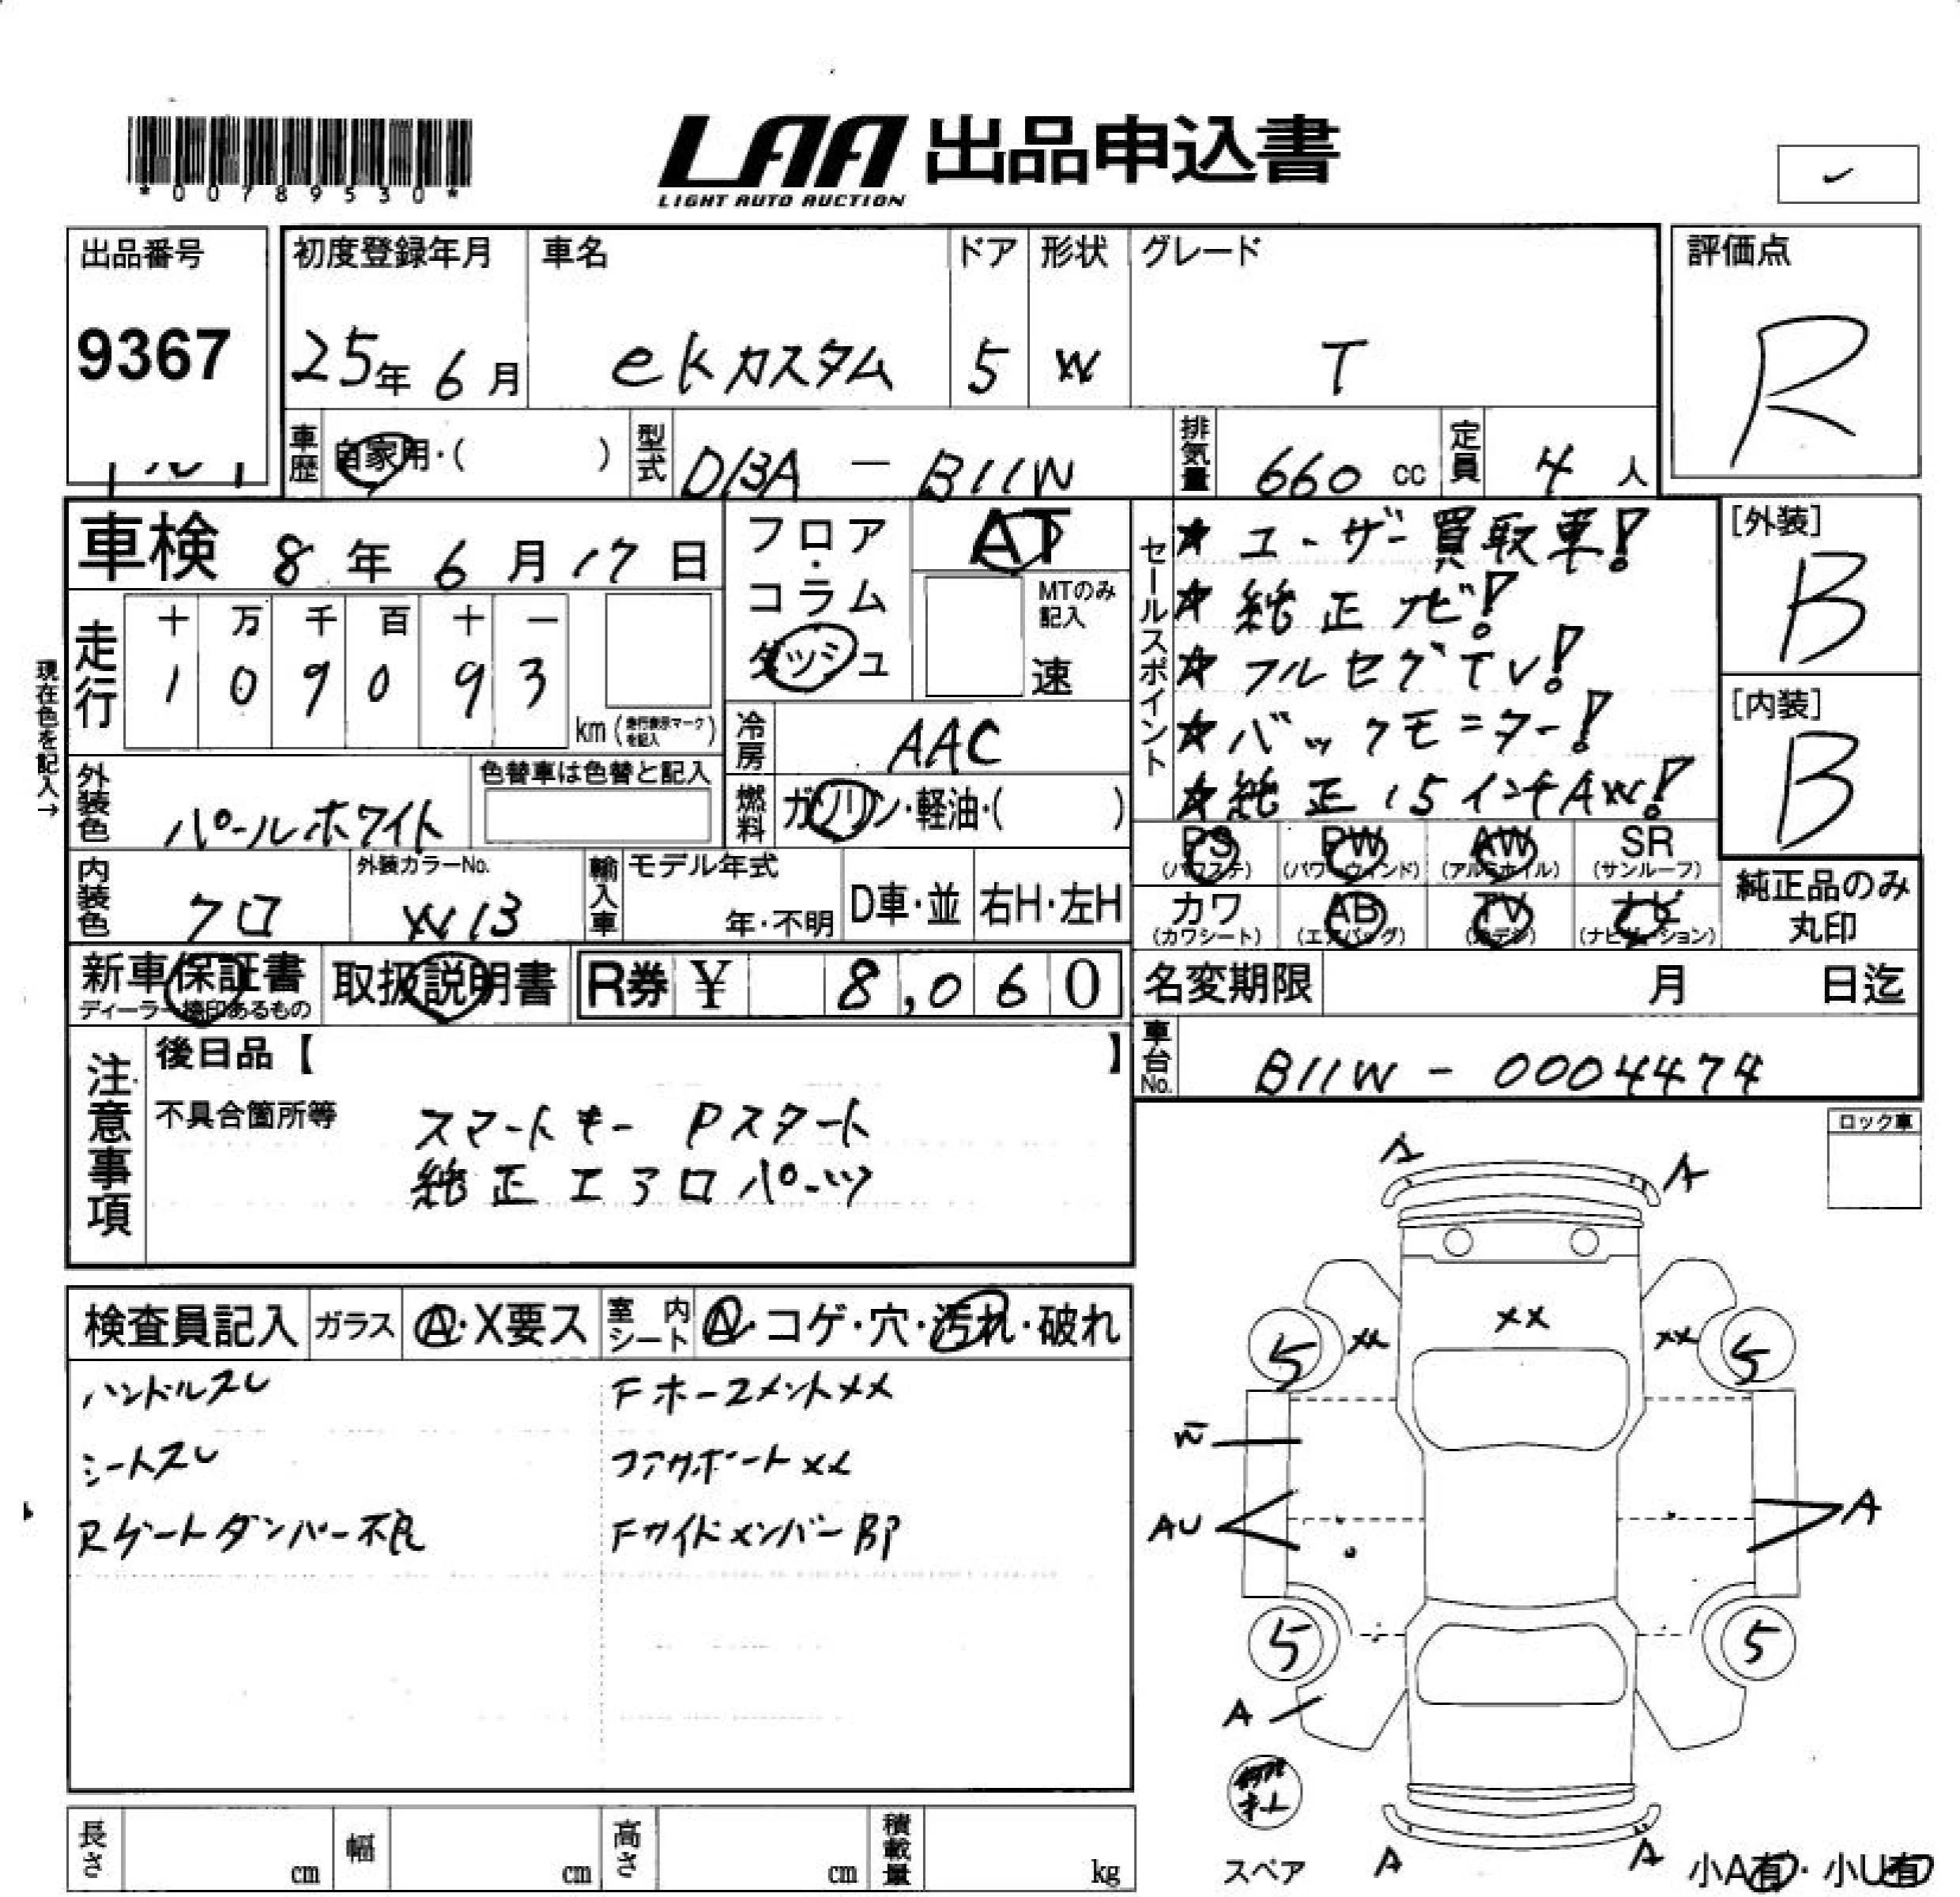 *00789530*
LAA 出品申込書
LIGHT AUTO AUCTION
出品番号
9367
初度登録年月
25年 6月
車名
ekカスタム
ドア
5
形状
W
グレード
T
評価点
R
車歴 自家用・( )
型式 DBA - B11W
排気量 660 cc
定員 4 人
車検 8年 6月 17日
フロア・コラム
ダッシュ
AT
MTのみ記入
速
セールスポイント
★ユーザー買取車!
★純正ナビ!
★フルセグTV!
★バックモニター!
★純正15インチAW!
[外装]
B
[内装]
B
現在色を記入→
走行
十 万 千 百 十 一
1 0 9 0 9 3
km (走行表示マークを記入)
冷房 AAC
燃料 ガソリン・軽油・( )
外装色 パールホワイト
色替車は色替と記入
内装色 クロ
外装カラーNo.
W13
輸入車
モデル年式
年・不明
D車・並
右H・左H
PS
(パワステ)
PW
(パワーウィンド)
AW
(アルミホイル)
SR
(サンルーフ)
カワ
(カワシート)
AB
(エアバッグ)
TV
ナビ
(ナビゲーション)
純正品のみ
丸印
新車保証書
ディーラー捺印あるもの
取扱説明書
R券 ¥ 8,060
名変期限 月 日迄
車台No. B11W - 0004474
注意事項
後日品【 】
不具合箇所等
スマートキー Pスタート
純正エアロパーツ
ロック車
検査員記入
ガラス
A・X要ス
室内シート
A・コゲ・穴・汚れ・破れ
ハンドルスレ
シートスレ
Rゲートダンパー不良
FホースメントXX
コアサポートXX
Fサイドメンバー即
A
A
XX
XX
XX
5
5
AU
A
5
5
A
スペア
A
A
小A有・小U有
長さ cm
幅 cm
高さ cm
積載量 kg